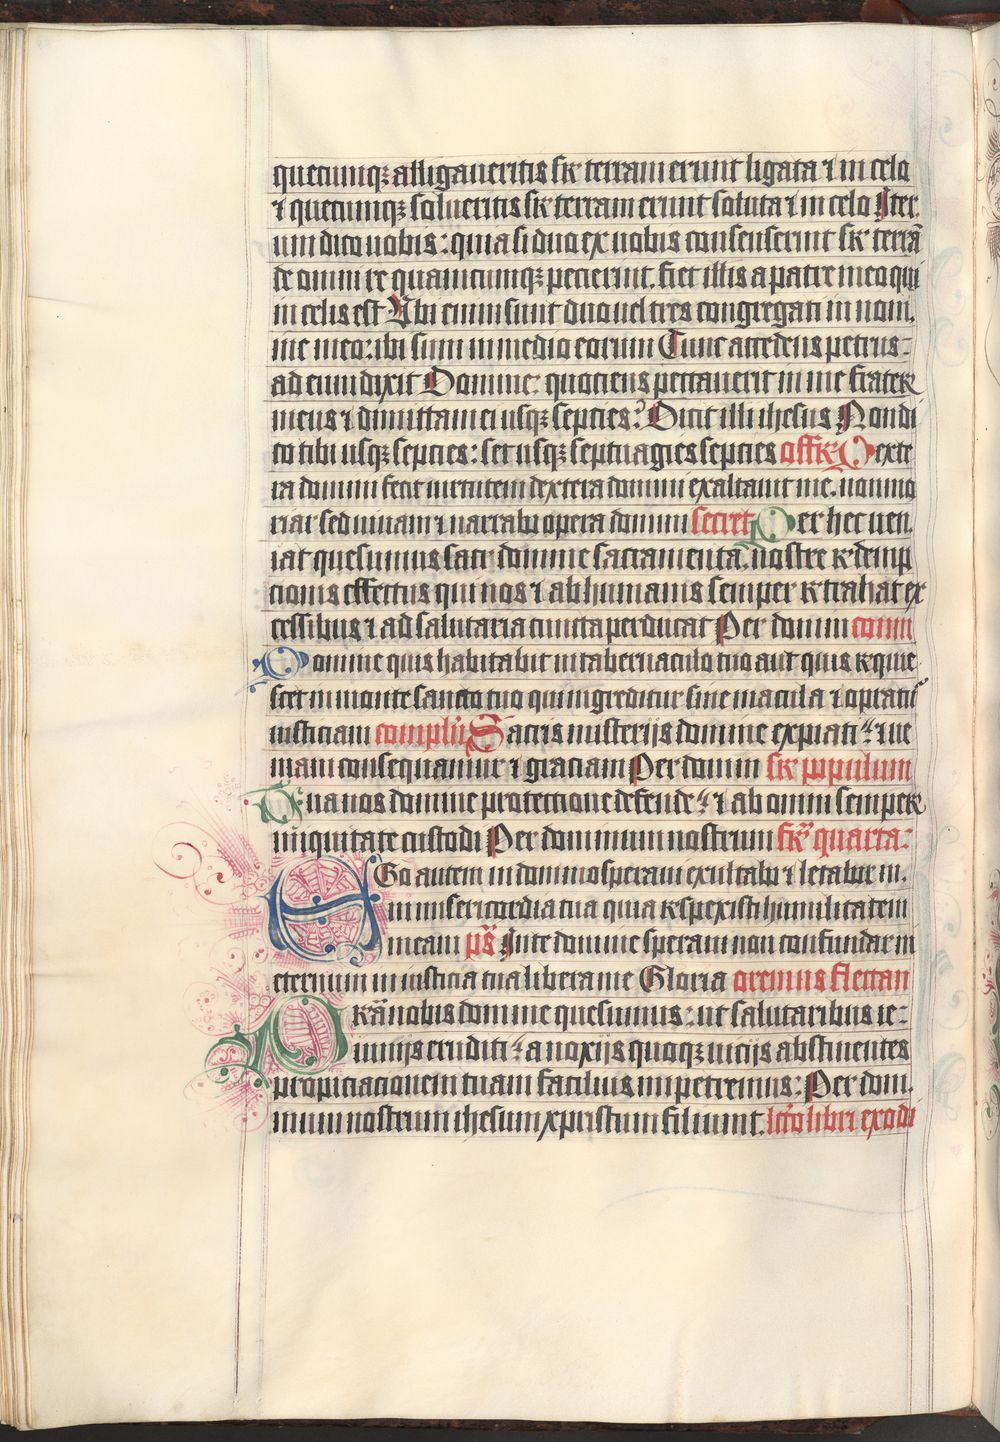 quecumqz alligaueritis sr terram erunt ligata ⁊ in celo
⁊ quecumqz solueritis sr terram erunt soluta ⁊ in celo Iter
um dico uobis: quia si duo ex uobis consenserint sr terrā
de omni re quamcumqz pecierint. fiet illis a patre meo qui
in celis est Vbi enim sunt duo uel tres congregati in nomi.
ne meo: ibi sum in medio eorum Tunc accedens petrus:
ad eum dixit Domine: quociens peccauerit in me frater
meus ⁊ dimittam ei usqz septies? Dicit illi ihesus Non di
co tibi usqz septies: set usqz septuagies septies offr Dexte
ra domini fecit uirtutem dextera domini exaltauit me. non mo
riar sed uiuam ⁊ narrabo opera domini secret Per hec uen.
iat quesumus sacr domine sacramenta. nostre redemp
cionis effectus qui nos ⁊ ab humanis semper retrahat ex
cessibus ⁊ ad salutaria cuncta perducat Per domin comm
Domine quis habitabit in tabernaculo tuo aut quis reque
scet in monte sancto tuo qui ingreditur sine macula ⁊ operatur
iusticiam complu Sacris misterijs domine expiati: ⁊ ue
niam consequamur ⁊ graciam Per domin sr populum
Tua nos domine protectione defende: ⁊ ab omni semper
iniquitate custodi Per dominum nostrum fr quarta:
EGo autem in domino speraui exultabo ⁊ letabor in.
in misericordia tua quia respexisti humilitatem
meam ps In te domine speraui non confundar in
eternum in iusticia tua libera me Gloria oremus flectan
PRā nobis domine quesumus: ut salutaribus ie:
iunijs eruditi: a noxijs quoqz uicijs abstinentes
propiciacionem tuam facilius impetremus: Per dom.
inum nostrum ihesum xpristum filium. lctō libri exodi